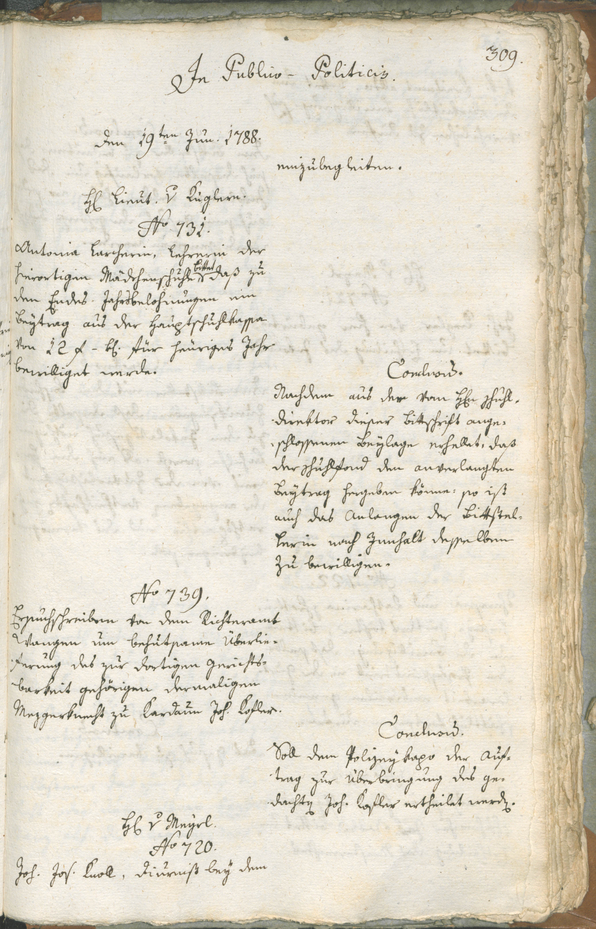 309.
In Publico-Politicis.
den 19ten Jun. 1788.
einzubegleiten.
H. Lieut. v Kuglern.
No 731.
Antonia Larcherin, Lehrerin der
hierortigen Mädchenschuhle bittet, daß zu
den Endes-Jahrsbelohnungen ein
Beytrag aus der Hauptschuhlkassa
von 22 f - kr. für heuriges Jahr
bewilliget werde.
Conclusum.
Nachdem aus der vom Hn Schuhl-
direktor dieser Bittschrift ange-
schlossenen Beylage erhellt, das
der Schuhlfond den anverlangten
Beytrag hergeben könne: so ist
auch das Anlangen der Bittstel-
lerin nach Innhalt desselben
zu bewilligen.
No 739.
Ersuchschreiben von dem Richteramt
Wangen um behutsame Überlie-
ferung des zur dortigen Gerichts-
barkeit gehörigen dermaligen
Mezgerknecht zu Kardaun Joh. Kofler.
Conclusum.
Soll dem Polizeykapo der Auf-
trag zur Überbringung des ge-
dachten Joh. Kofler ertheilet werden.
H. v Mayrl.
No 720.
Joh. Jos. Knoll, Diurnist bey dem